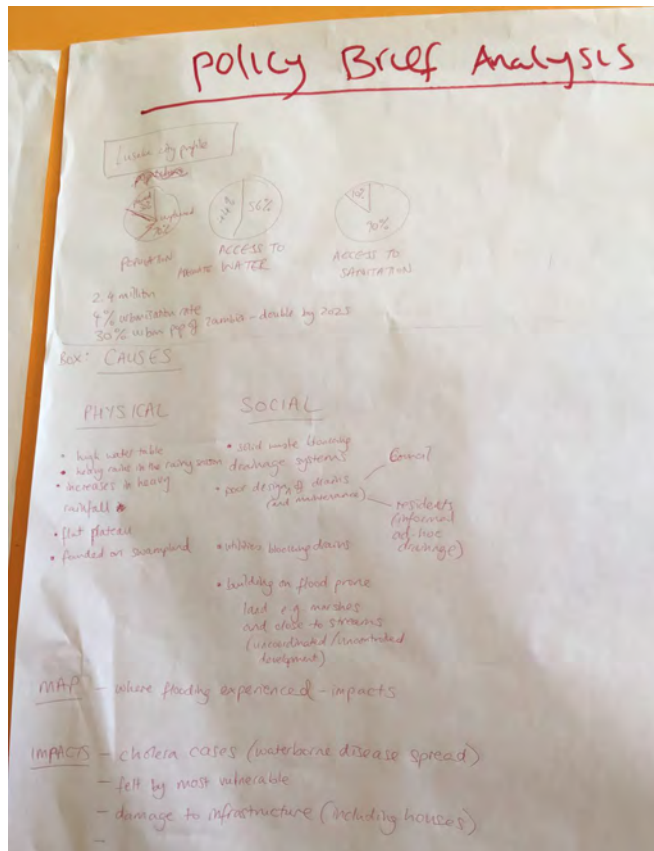 Policy Brief Analysis
Lusaka city profile
70%
44%
56%
70%
POPULATION
ACCESS TO
WATER
ACCESS TO
SANITATION
2.4 million
4% urbanisation rate
30% urban pop of Zambia – double by 2025
Box: CAUSES
PHYSICAL
SOCIAL
• high water table
• heavy rains in the rainy season
• increases in heavy
rainfall
• flat plateau
• founded on swampland
• solid waste blocking
drainage systems
• poor design of drains
(and maintenance)
Council
residents
(informal
ad-hoc
drainage)
• utilities blocking drains
• building on flood prone
land e.g. marshes
and close to streams
(uncoordinated/uncontrolled
development)
MAP – where flooding experienced – impacts
IMPACTS – cholera cases (waterborne disease spread)
– felt by most vulnerable
– damage to infrastructure (including houses)
–